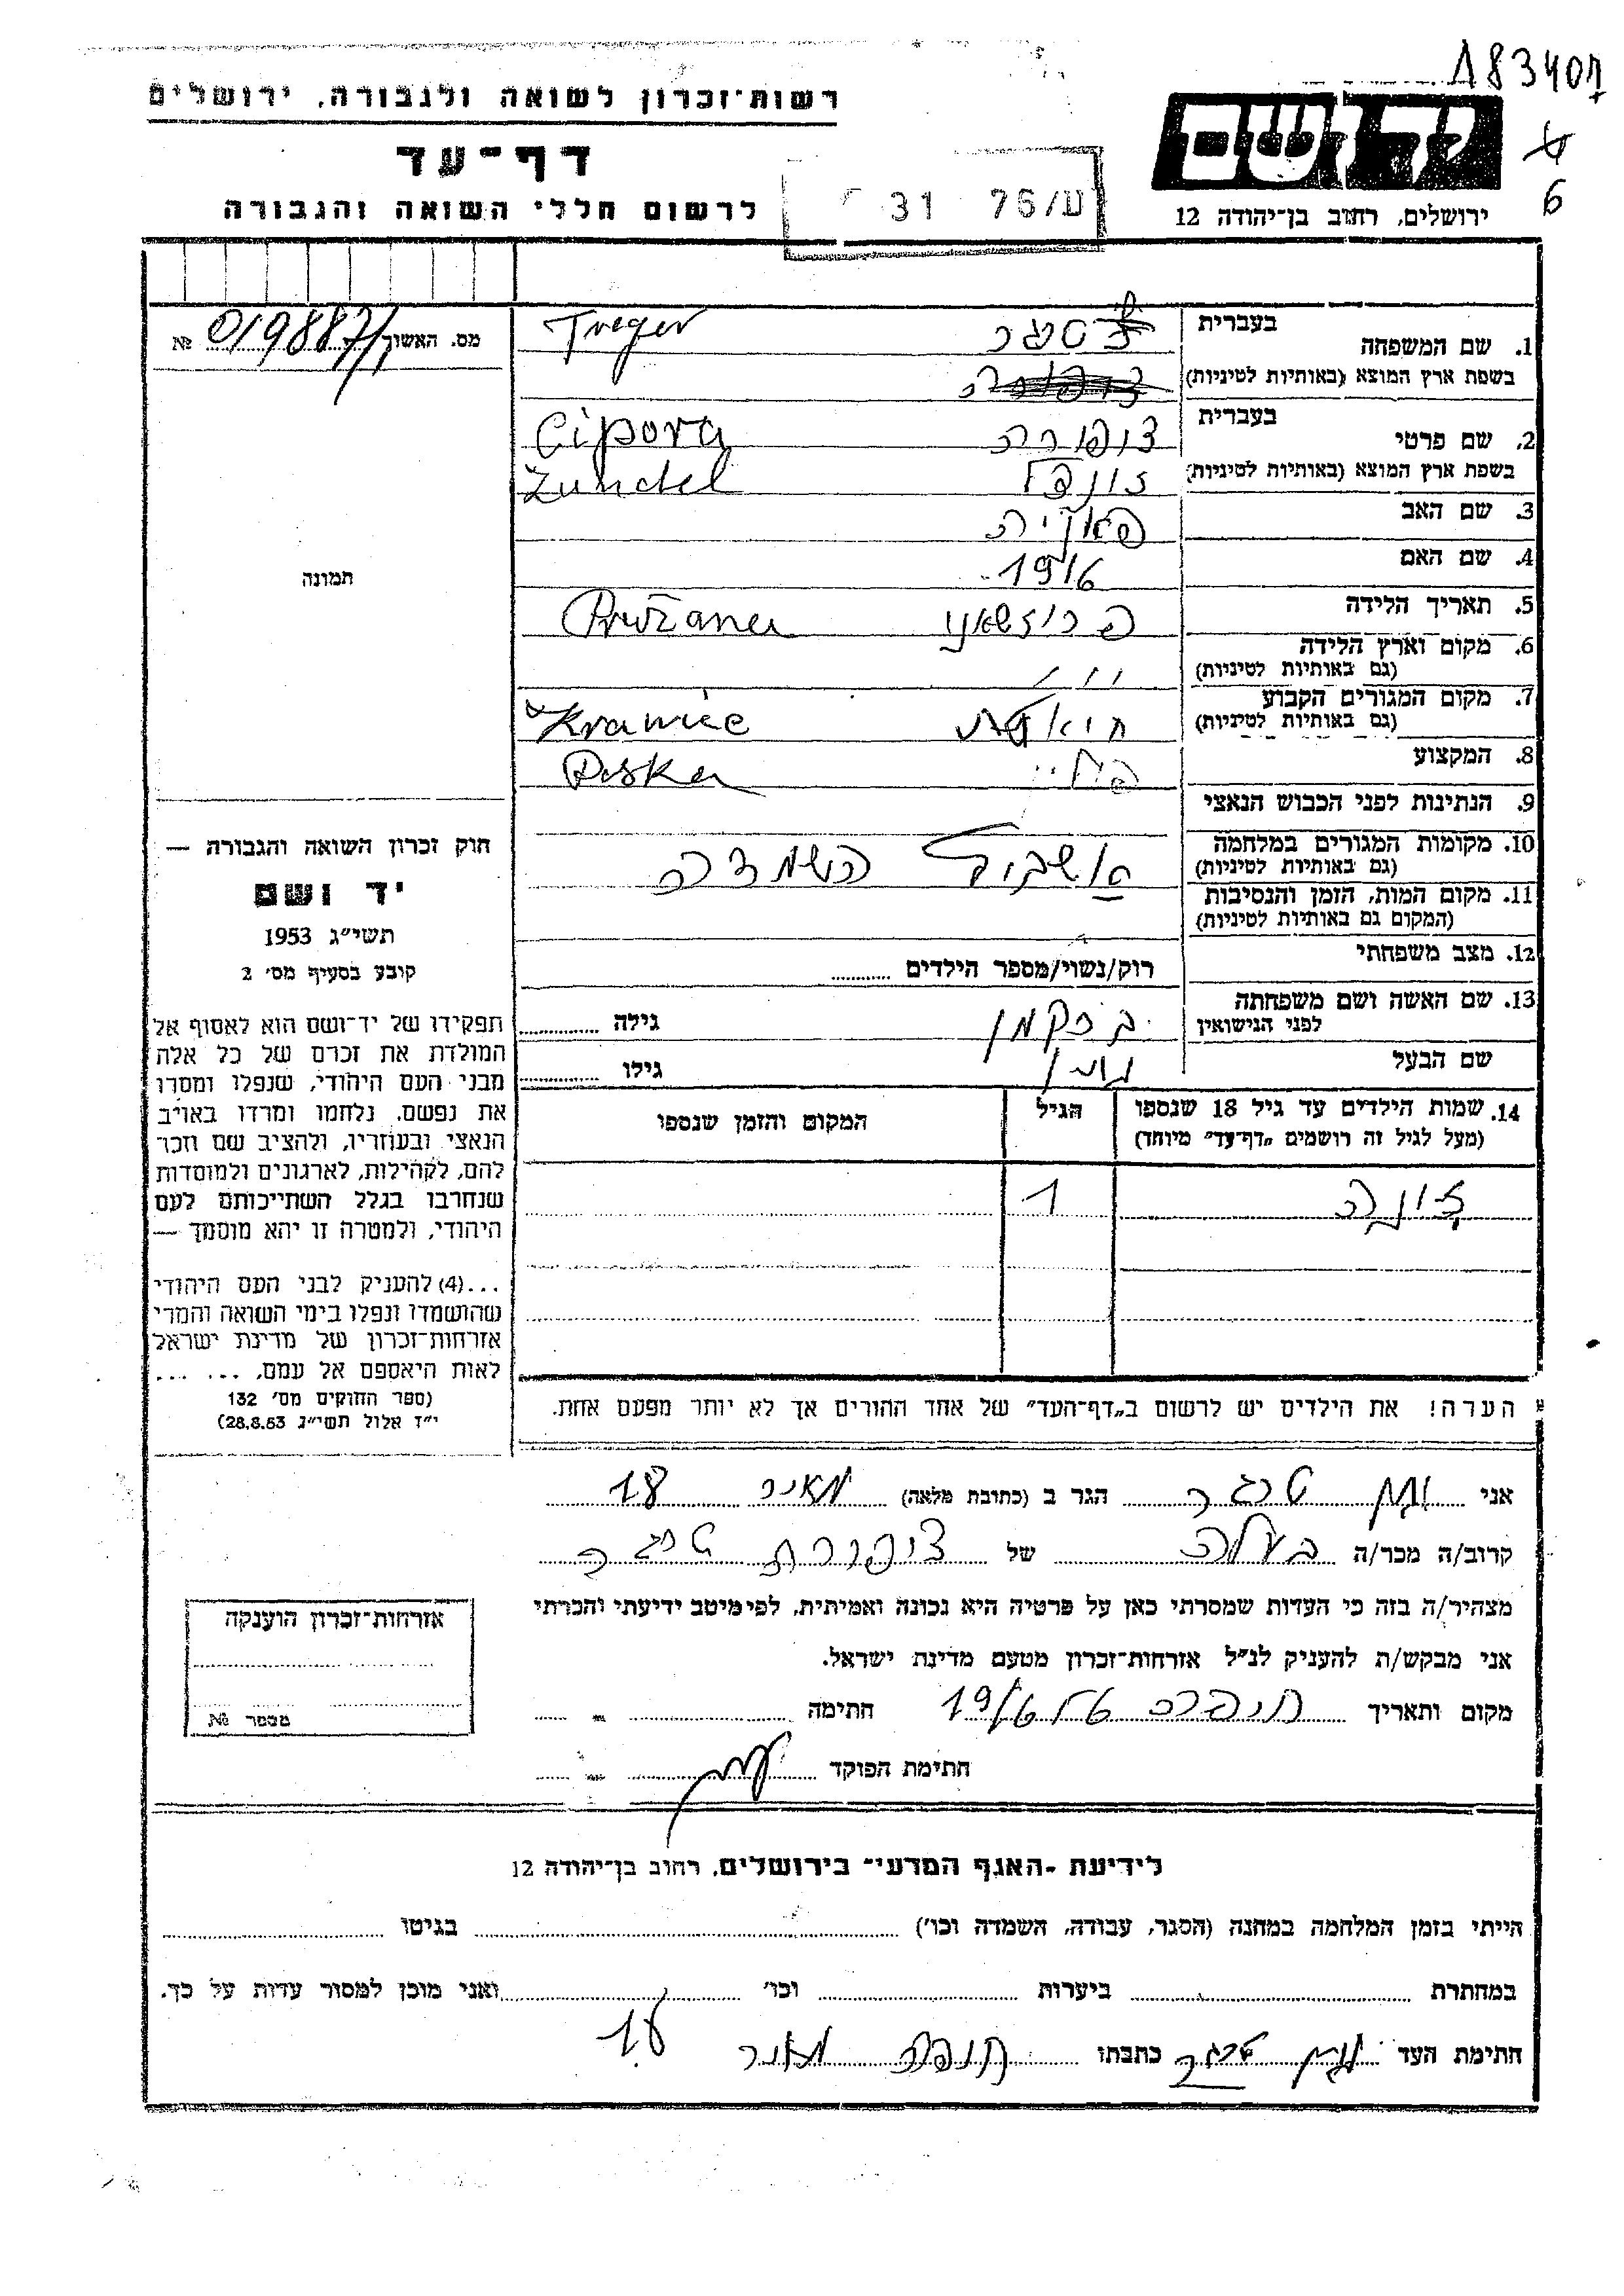 183407
רשות־זכרון לשואה ולגבורה, ירושלים
יד ושם
דף־עד
6
לרשום חללי השואה והגבורה
31 76/ע
ירושלים, רחוב בן־יהודה 12
1. שם המשפחה
בעברית
טרגר
Treger
בשפת ארץ המוצא (באותיות לטיניות)
מס. האשור 019887/1 №
2. שם פרטי
בעברית
ציפורה
Cipora
בשפת ארץ המוצא (באותיות לטיניות)
זונדל
Zundel
3. שם האב
4. שם האם
1916
5. תאריך הלידה
פרוזשאני
Pružana
6. מקום וארץ הלידה
(גם באותיות לטיניות)
7. מקום המגורים הקבוע
(גם באותיות לטיניות)
Krawiec
8. המקצוע
Polska
9. הנתינות לפני הכבוש הנאצי
10. מקומות המגורים במלחמה
(גם באותיות לטיניות)
השמדה
11. מקום המות, הזמן והנסיבות
(המקום גם באותיות לטיניות)
12. מצב משפחתי
רוק/נשוי/מספר הילדים
13. שם האשה ושם משפחתה
לפני הנישואין
ברקמן
גילה
שם הבעל
נתן
גילו
14. שמות הילדים עד גיל 18 שנספו
(מעל לגיל זה רושמים „דף־עד” מיוחד)
הגיל
המקום והזמן שנספו
1
הערה! את הילדים יש לרשום ב„דף־העד” של אחד ההורים אך לא יותר מפעם אחת.
תמונה
חוק זכרון השואה והגבורה —
יד ושם
תשי״ג 1953
קובע בסעיף מס׳ 2
תפקידו של יד־ושם הוא לאסוף אל
המולדת את זכרם של כל אלה
מבני העם היהודי, שנפלו ומסרו
את נפשם, נלחמו ומרדו באויב
הנאצי ובעוזריו, ולהציב שם וזכר
להם, לקהילות, לארגונים ולמוסדות
שנחרבו בגלל השתייכותם לעם
היהודי, ולמטרה זו יהא מוסמך —
...(4) להעניק לבני העם היהודי
שהושמדו ונפלו בימי השואה והמרי
אזרחות־זכרון של מדינת ישראל
לאות היאספם אל עמם. ... ...
(ספר החוקים מס׳ 132
י״ד אלול תשי״ג 28.8.53)
אני נתן טרגר הגר ב (כתובת מלאה) מאיר 18
קרוב/ה מכר/ה בעלה של ציפורה טרגר
מצהיר/ה בזה כי העדות שמסרתי כאן על פרטיה היא נכונה ואמיתית, לפי מיטב ידיעתי והכרתי
אני מבקש/ת להעניק לנ״ל אזרחות־זכרון מטעם מדינת ישראל.
מקום ותאריך חתימה
חתימת הפוקד
אזרחות־זכרון הוענקה
מספר №
לידיעת „האגף המדעי” בירושלים, רחוב בן־יהודה 12
הייתי בזמן המלחמה במחנה (הסגר, עבודה, השמדה וכו׳) בגיטו
במחתרת ביערות וכו׳ ואני מוכן למסור עדות על כך.
חתימת העד נתן טרגר כתבתו חדרה מאיר 18